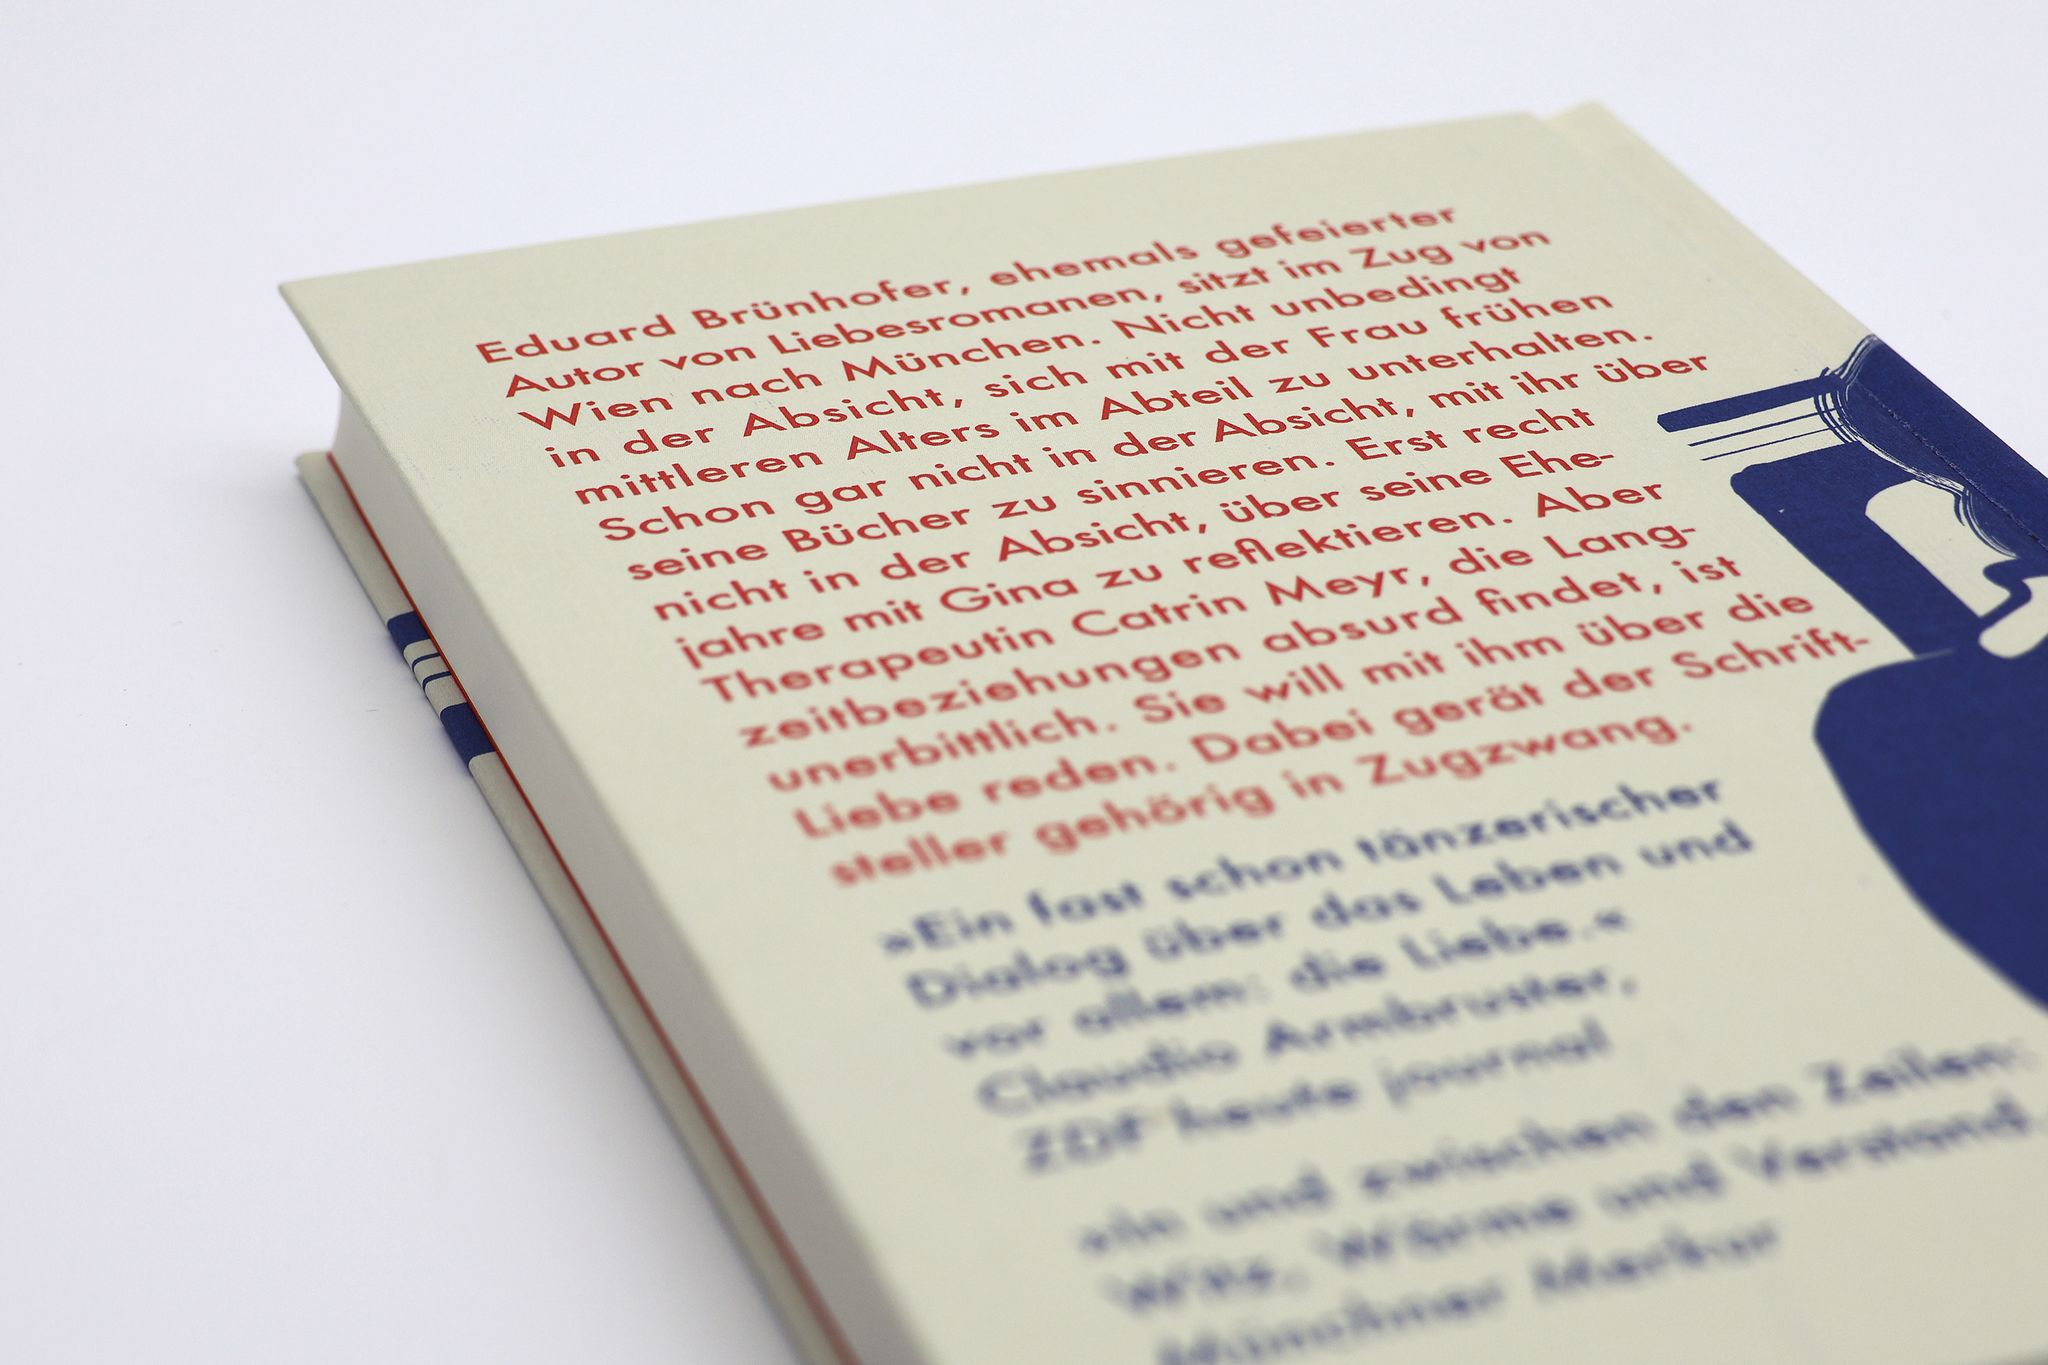 Eduard Brünhofer, ehemals gefeierter
Autor von Liebesromanen, sitzt im Zug von
Wien nach München. Nicht unbedingt
in der Absicht, sich mit der Frau frühen
mittleren Alters im Abteil zu unterhalten.
Schon gar nicht in der Absicht, mit ihr über
seine Bücher zu sinnieren. Erst recht
nicht in der Absicht, über seine Ehe-
jahre mit Gina zu reflektieren. Aber
Therapeutin Catrin Meyr, die Lang-
zeitbeziehungen absurd findet, ist
unerbittlich. Sie will mit ihm über die
Liebe reden. Dabei gerät der Schrift-
steller gehörig in Zugzwang.
»Ein fast schon tänzerischer
Dialog über das Leben und
vor allem: die Liebe.«
Claudio Armbruster,
ZDF heute journal
»In und zwischen den Zeilen:
Witz, Wärme und Verstand.
Münchner Merkur